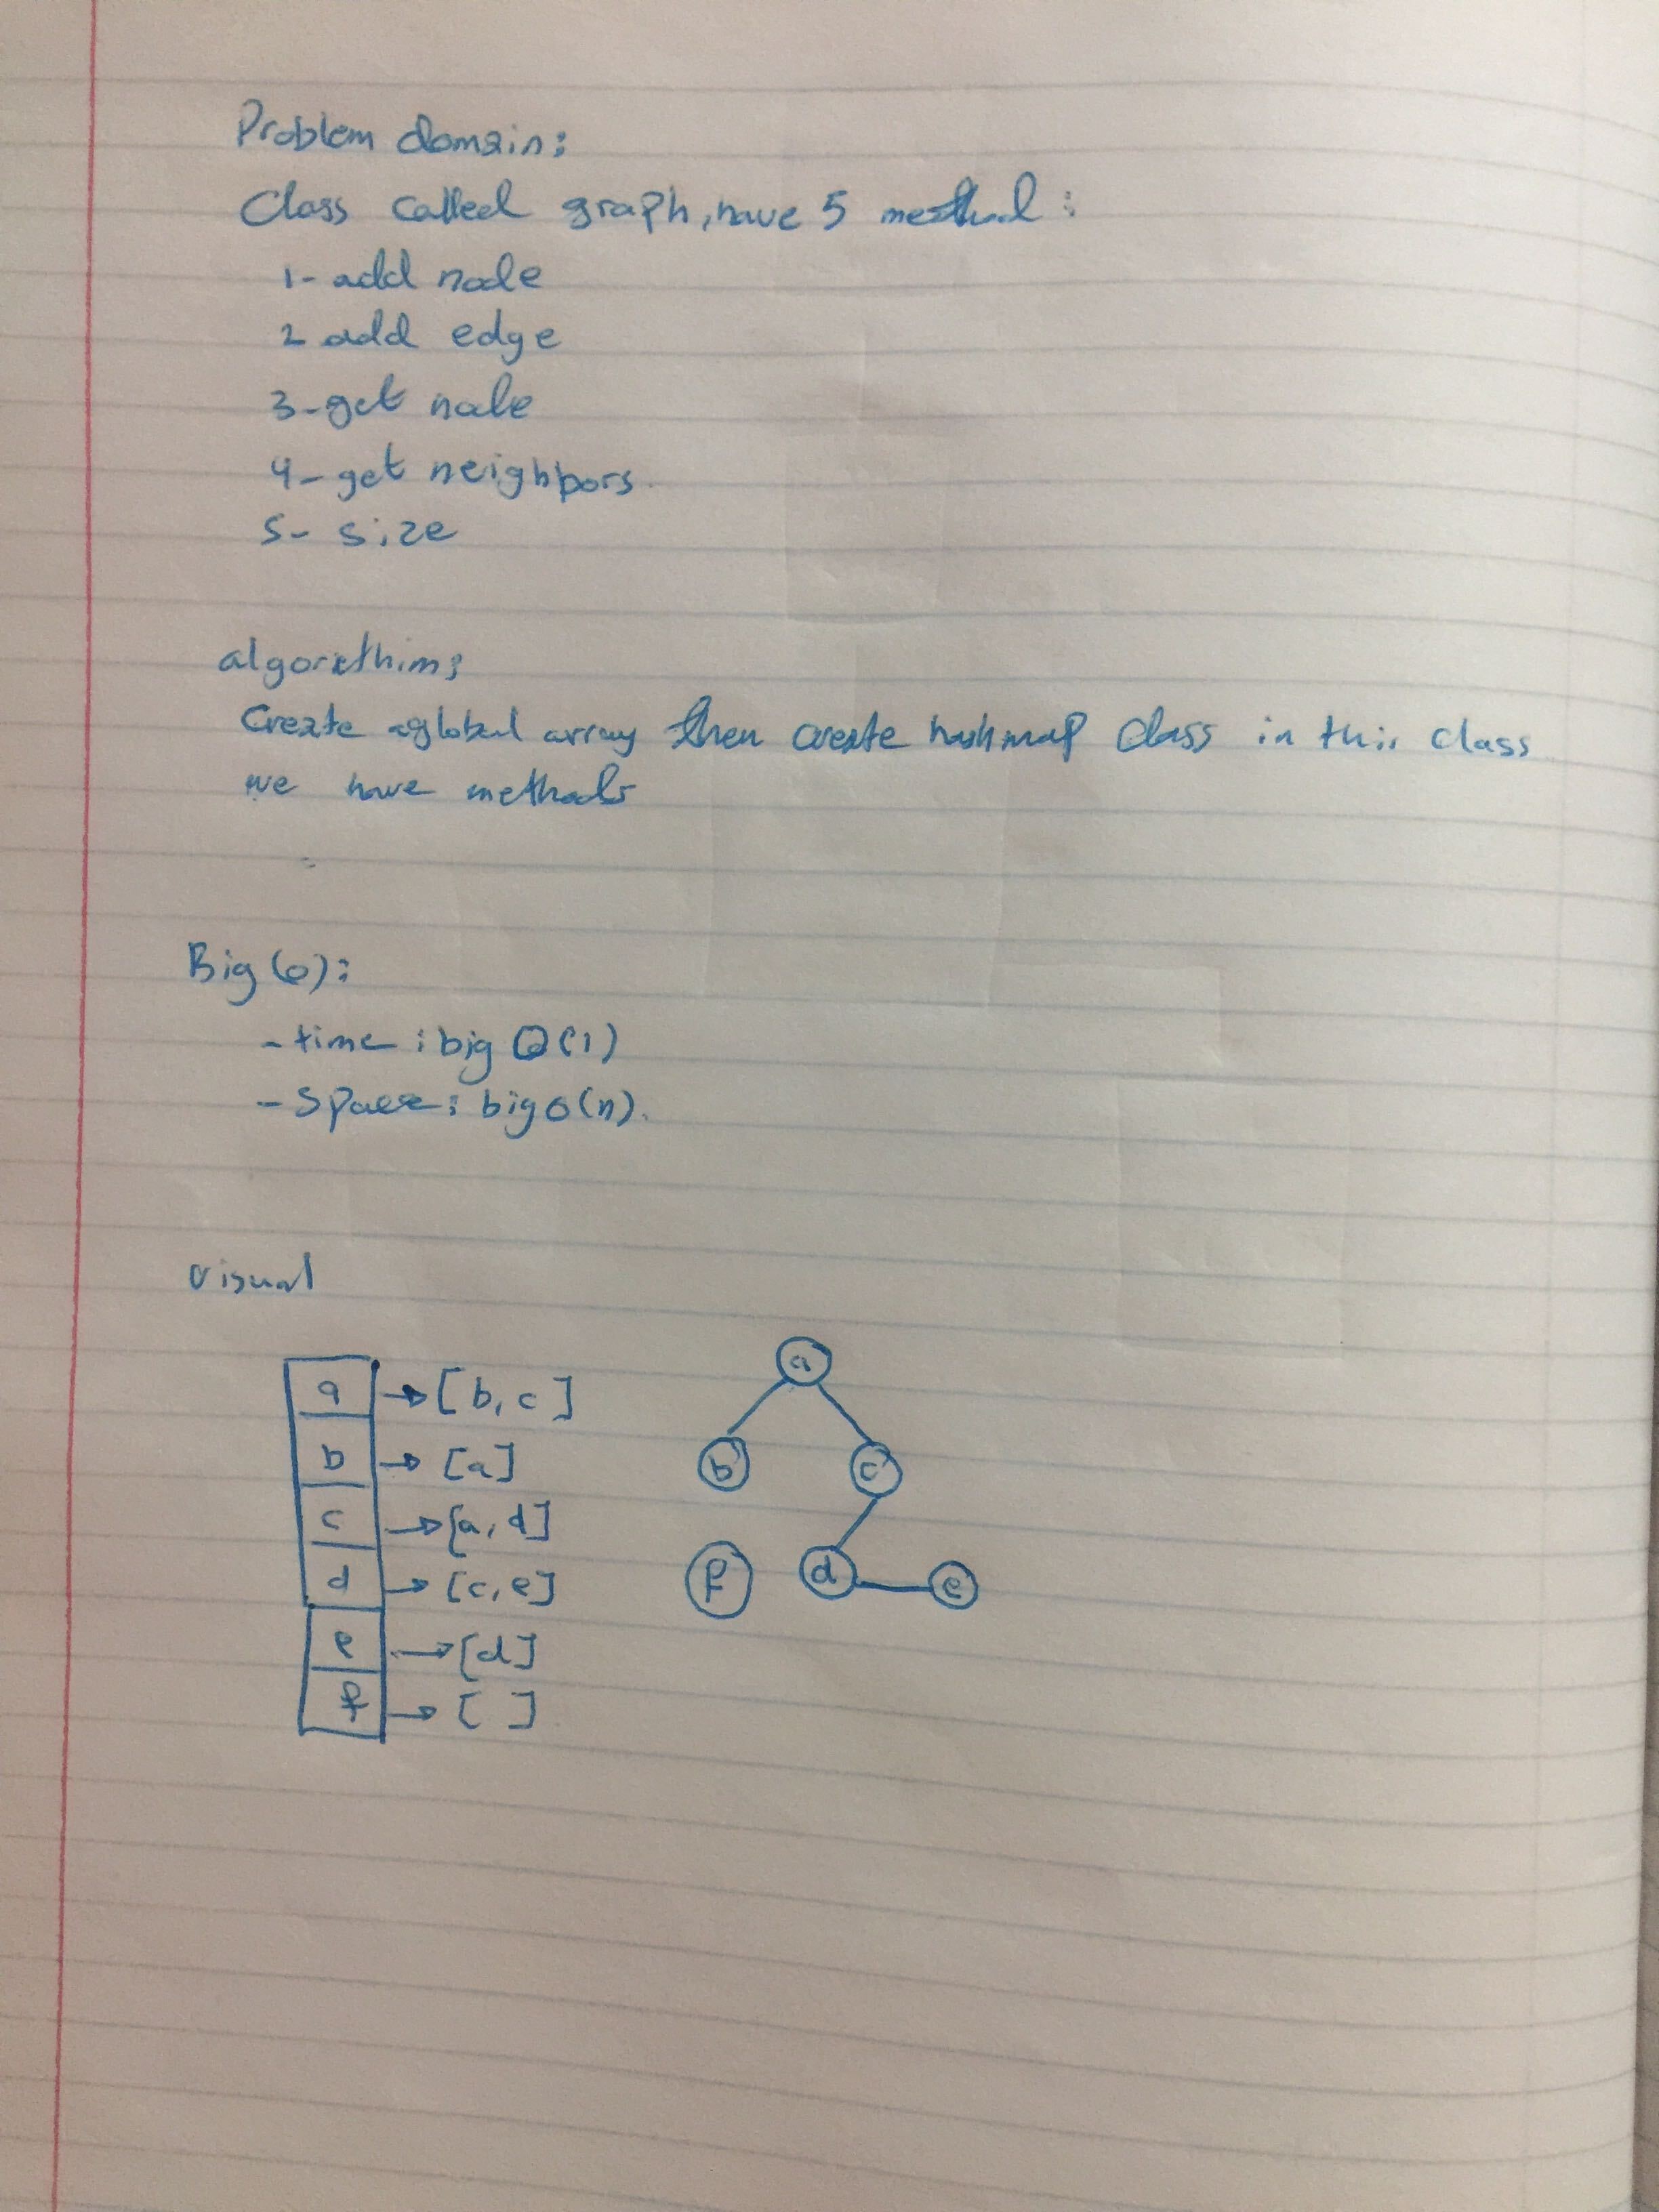 Problem domain:
Class called graph, have 5 method:
1- add node
2 add edge
3- get node
4- get neighbors.
5- size
algorethim:
Create a global array then create hashmap class in this class
we have methods
Big(o):
- time : big O(1)
- Space : big o(n).
visual
a → [b, c]
b → [a]
c → [a, d]
d → [c, e]
e → [d]
f → [ ]
a
b c
f d e